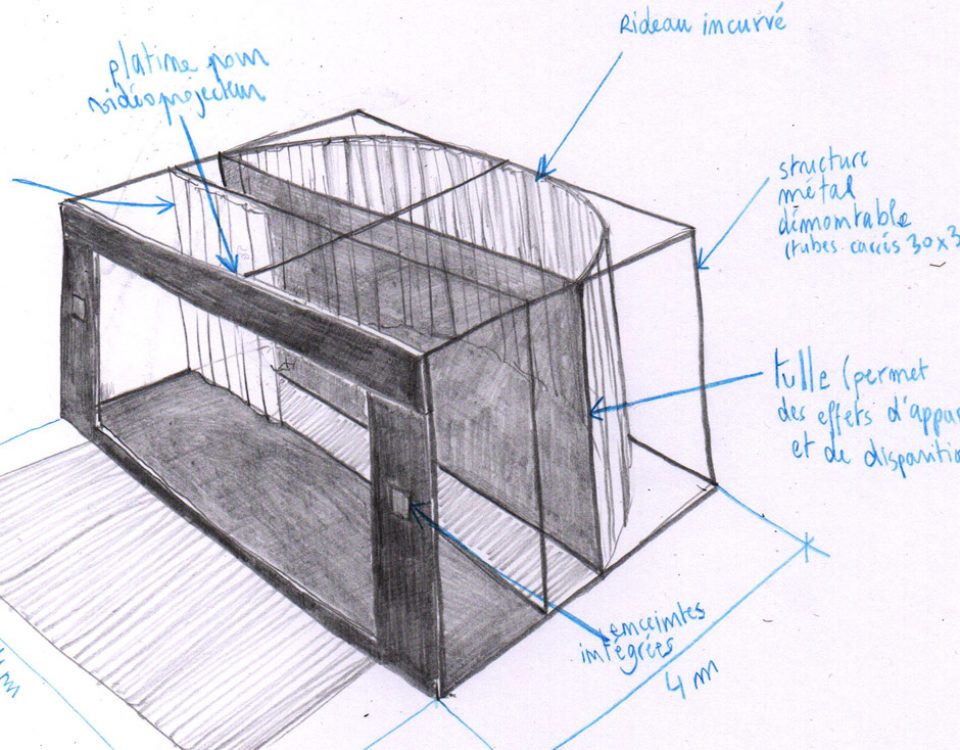 Rideau incurvé
platine pour
vidéoprojecteur
structure
métal
démontable
(tubes carrés 30x3
tulle (permet
des effets d'appar
et de disparitio
enceintes
intégrées
4 m